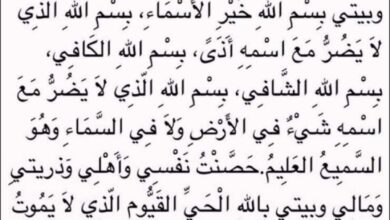 وبيتي بِسْمِ اللهِ خَيْرِ الأَسْمَاءِ، بِسْمِ اللهِ الَّذِي
لاَ يَضُرُّ مَعَ اسْمِهِ أَذَىً، بِسْمِ اللهِ الكَافِي،
بِسْمِ اللهِ الشَّافِي، بِسْمِ اللهِ الّذِي لاَ يَضُرُّ مَعَ
اسْمِهِ شَيْءٌ فِي الأَرْضِ وَلاَ فِي السَّمَاءِ وَهُوَ
السَّمِيعُ العَلِيمُ.حَصَّنْتُ نَفْسِي وَأَهْلِي وَذريتي
وَمَالِي وبيتي بِاللهِ الْحَيِّ القَيُّومِ الّذِي لاَ يَمُوتُ